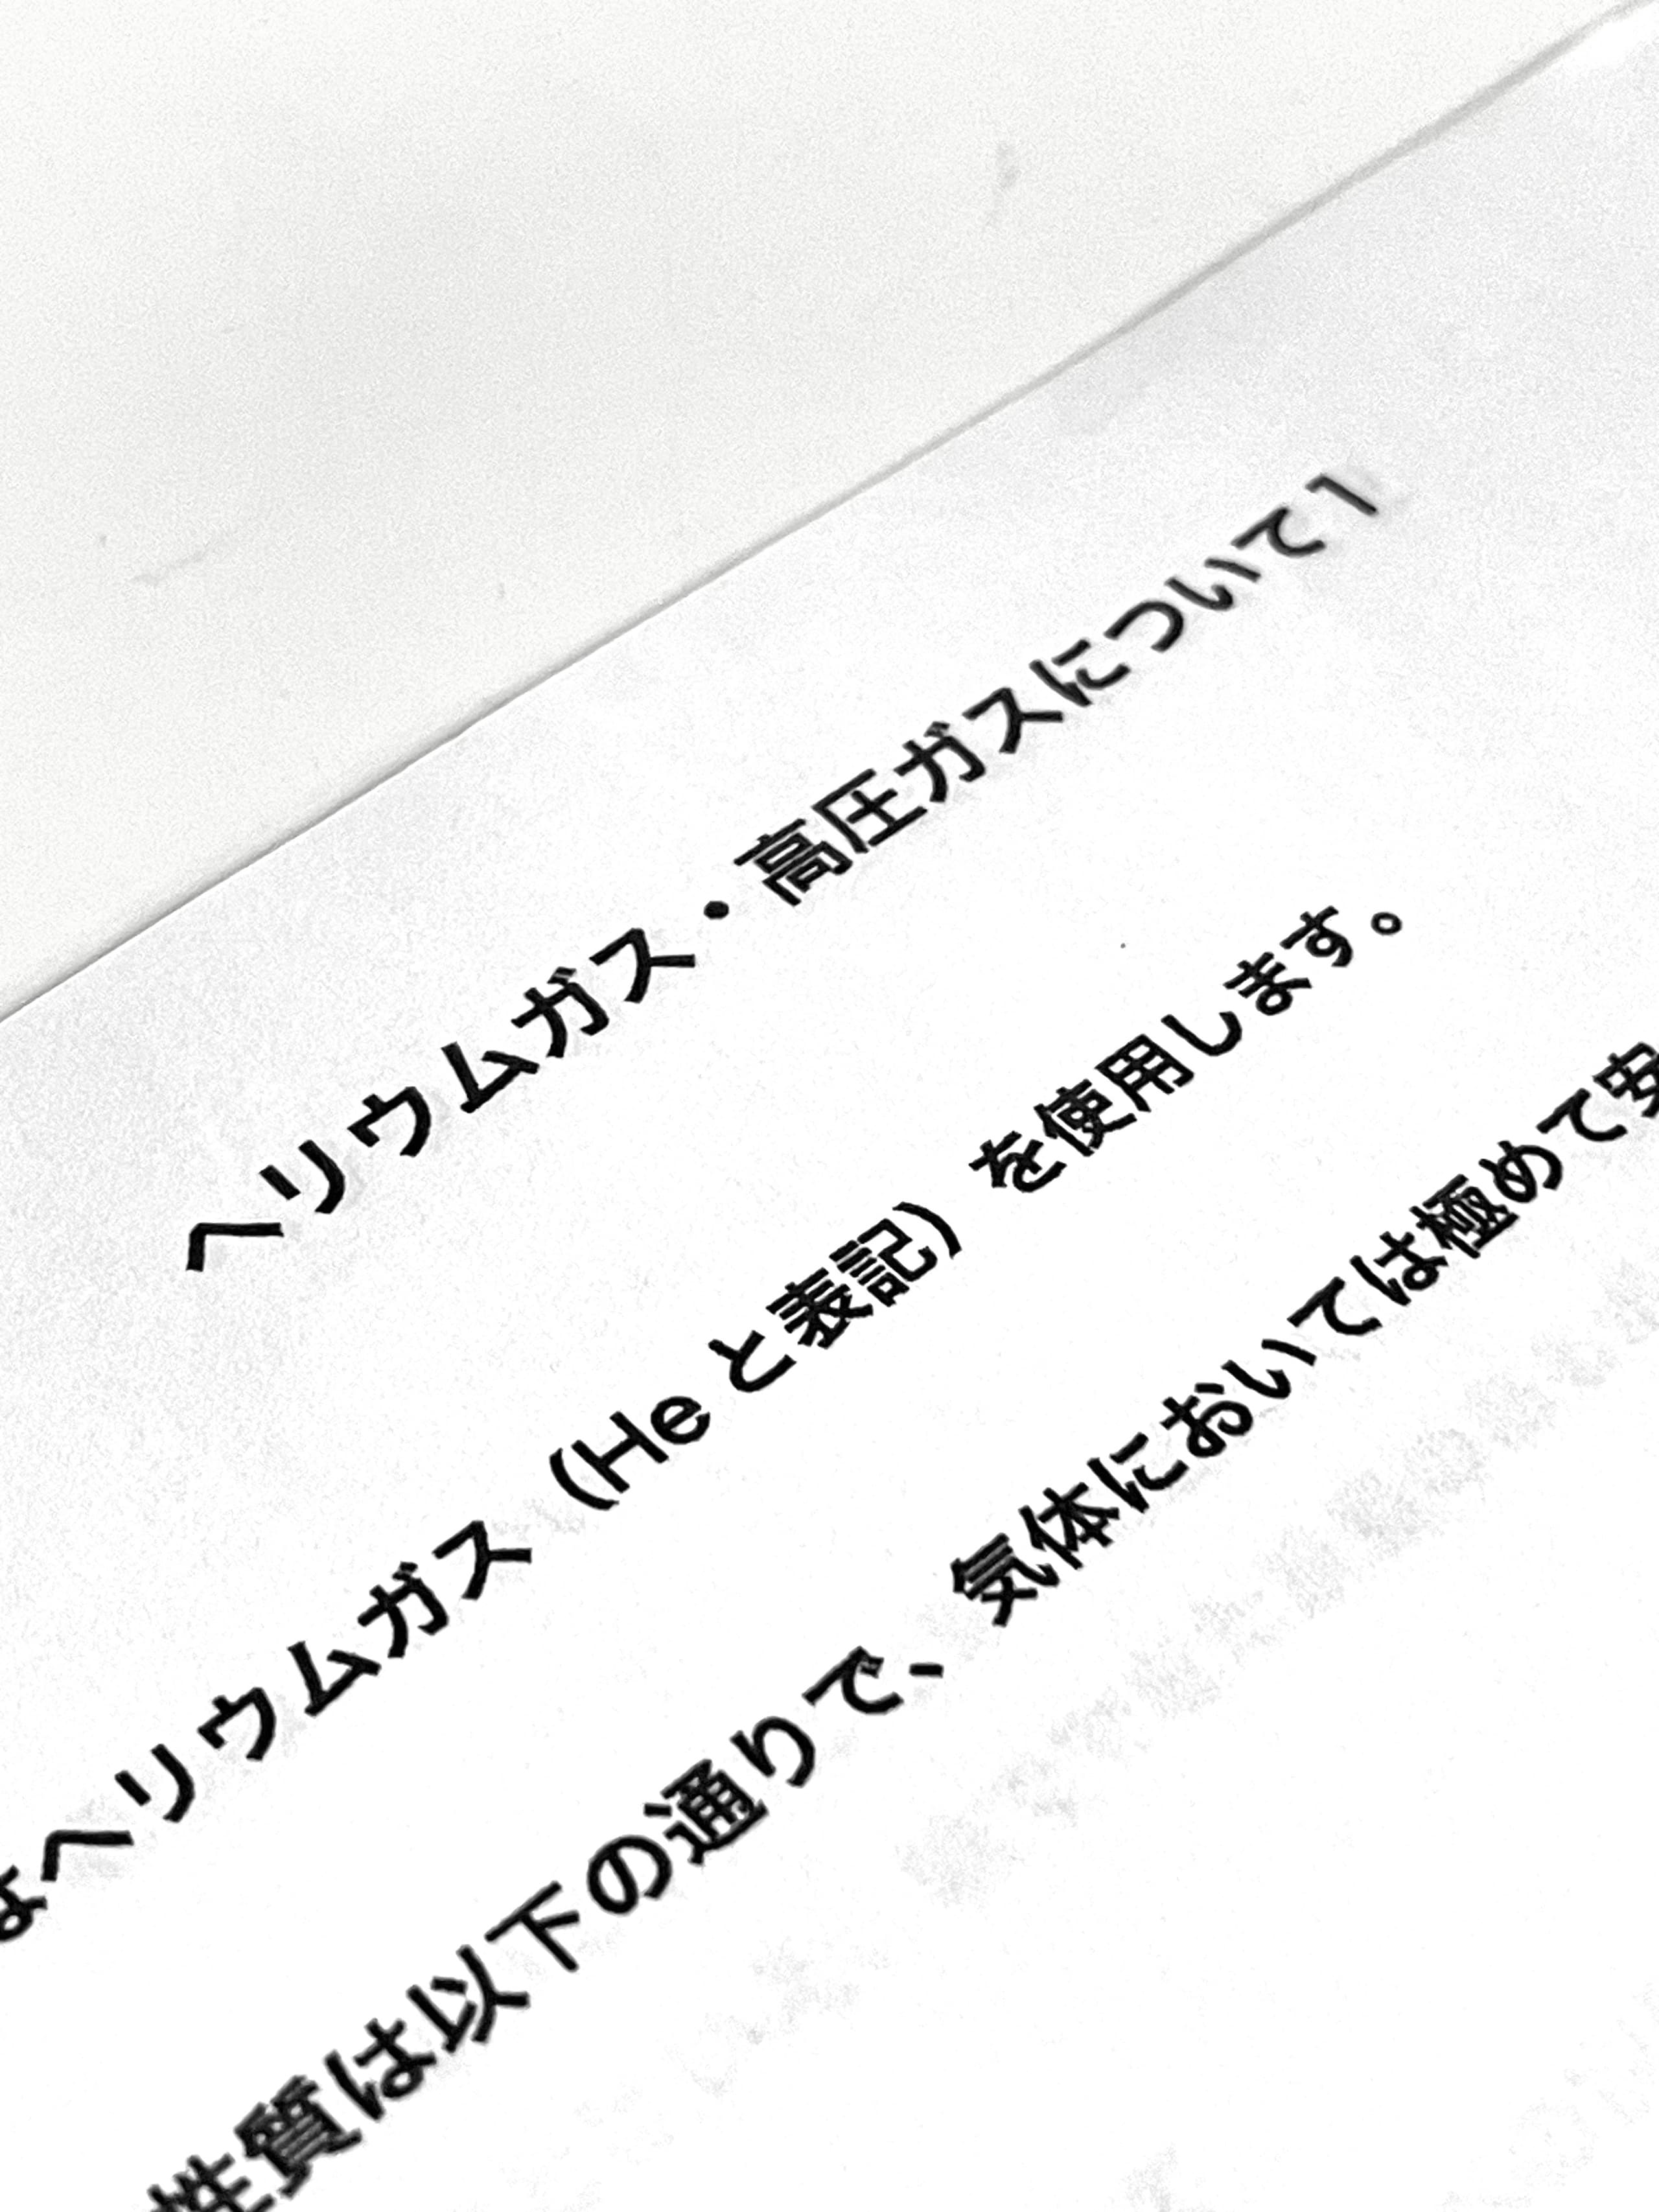 ヘリウムガス・高圧ガスについて1
はヘリウムガス（Heと表記）を使用します。
性質は以下の通りで、気体においては極めて安